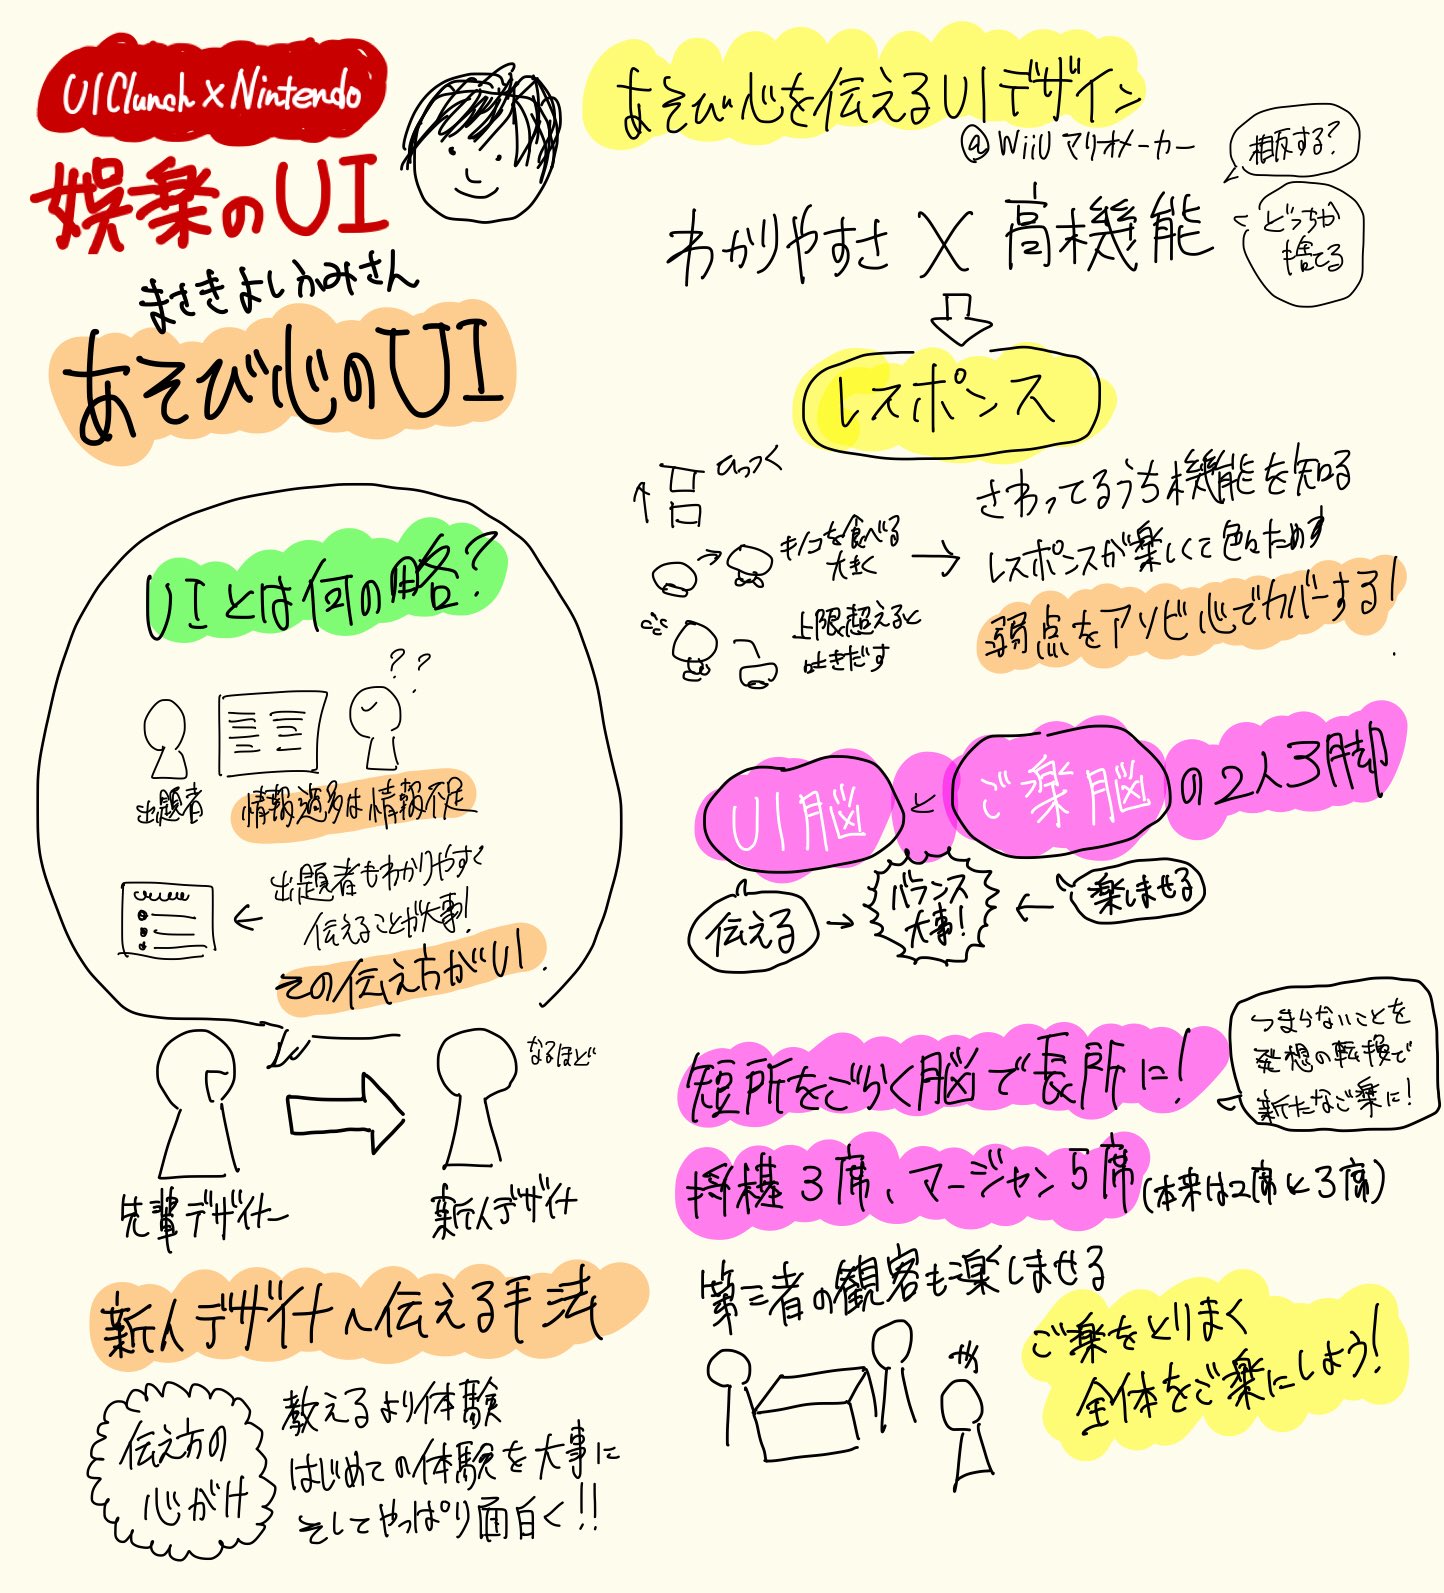 UI Clunch×Nintendo
娯楽のUI
まさきよしかみさん
あそび心のUI
UIとは何の略?
? ?
出題者
情報過多は情報不足
出題者もわかりやすく
伝えることが大事!
その伝え方がUI.
なるほど
先輩デザイナー
新人デザイナ
新人デザイナへ伝える手法
伝え方の
心がけ
教えるより体験
はじめての体験を大事に
そしてやっぱり面白く!!
あそび心を伝えるUIデザイン
@WiiUマリオメーカー
相反する?
わかりやすさ × 高機能
どっちか
捨てる
レスポンス
ひっつく
キノコを食べる
大きく
上限超えると
はきだす
さわってるうち機能を知る
レスポンスが楽しくて色々ためす
弱点をアソビ心でカバーする!
UI脳とご楽脳の2人3脚
伝える
バランス
大事!
楽しませる
短所をごらく脳で長所に!
つまらないことを
発想の転換で
新たなご楽に!
将棋3席、マージャン5席(本来は2席と3席)
第三者の観客も楽しませる
ご楽をとりまく
全体をご楽にしよう!